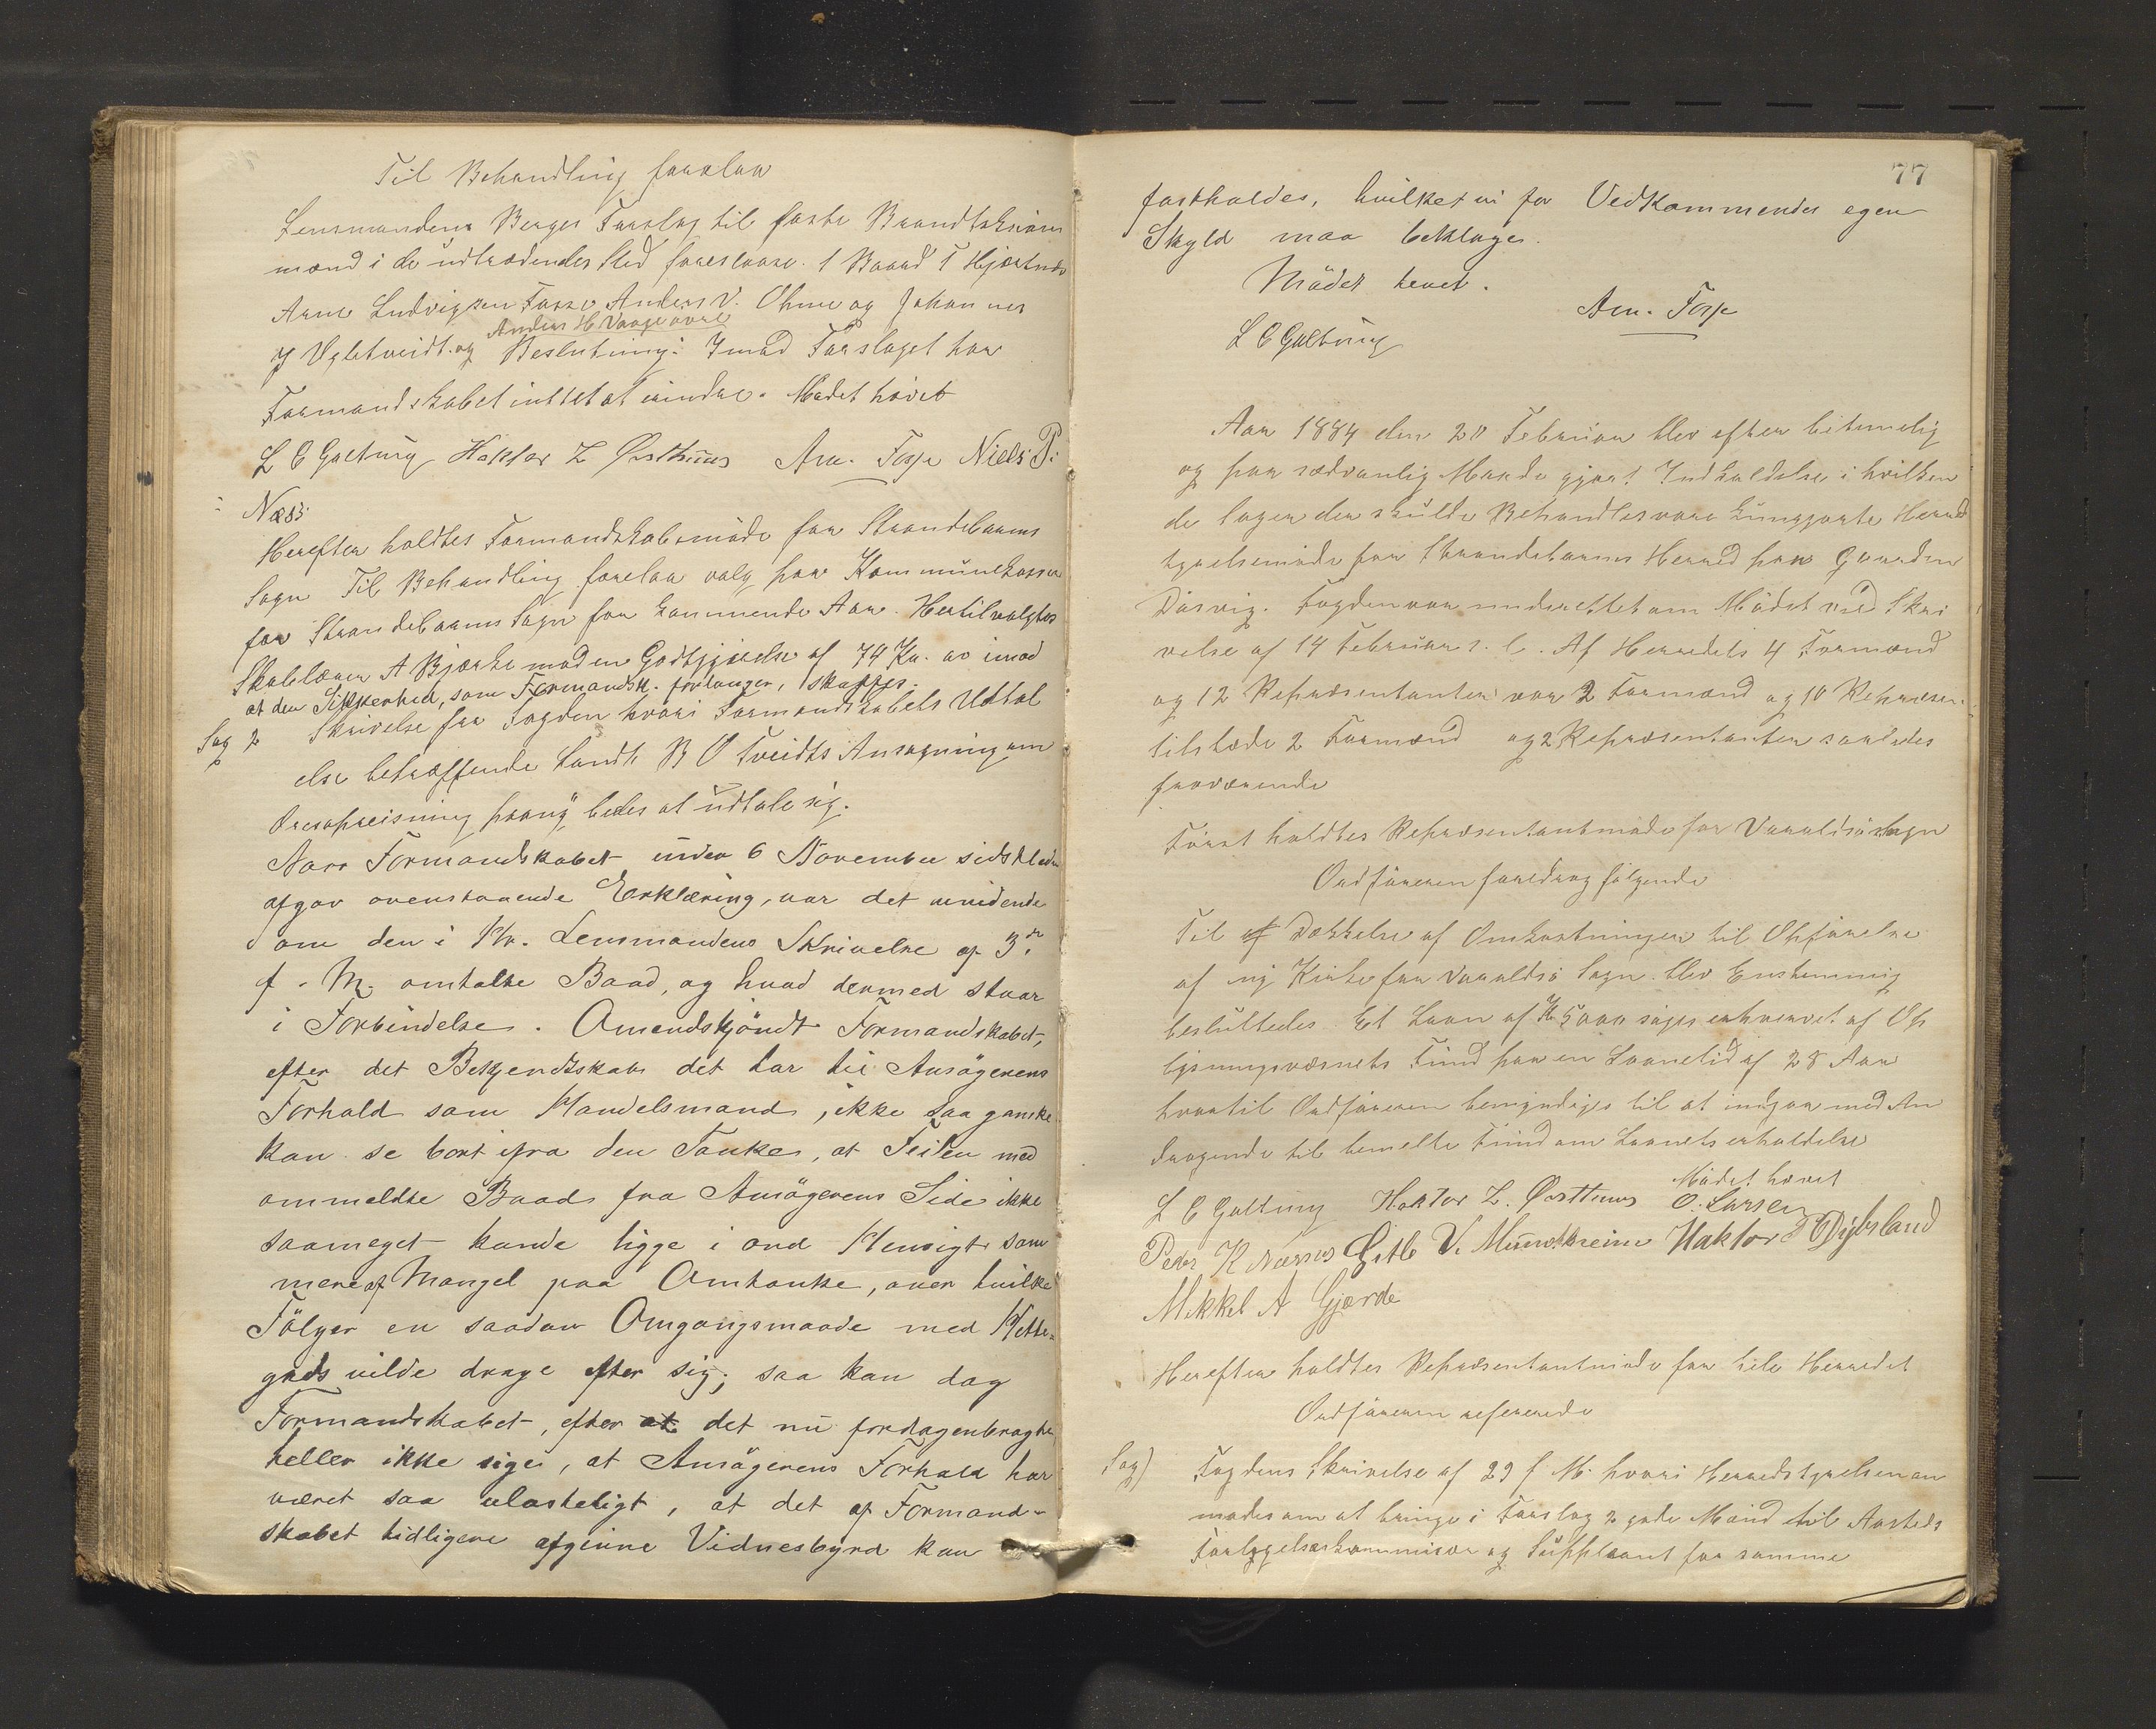 Til Behandling forelaa
Lensmandens Berges Forslag til faste Brandtaksions
mænd i de udtrædendes sted foreslaaes. 1 Baard T Hjartnes
Arne Ludvigsen Fosse Anders V. Ohme og Johannes
Anders H Vaage
J Ugletveidt. og Beslutning: Imod Forslaget har
Formandskabet intet at erindre. Mødet hævet
L E Galtung Haktor L Østhuus Arn. Fosse Niels P.
Næss.
Herefter holdtes Formandskabsmøde for Strandebarms
Sogn Til Behandling forelaa valg paa Kommunekasserer
for Strandebarms Sogn for kommende Aar. Hertil valgtes
Skolelærer A Bjørke mod en Godtgjørelse af 74 Kr. og imod
at den Sikkerhed, som Formandsk. forlanger, skaffes.
Sag 2 Skrivelse fra Fogden hvori Formandskabets Udtal
else betræffende Landh. B O Tveidts Ansøgning om
Oreisopreisning paany bedes at udtale sig.
Naar Formandskabet under 6 November sidstleden
afgav ovenstaaende Erklæring, var det uvidende
om den i Hr. Lensmandens Skrivelse af 3die
f. M. omtalte Baad, og hvad dermed staar
i Forbindelse. Omendskjøndt Formandskabet,
efter det Bekjendtskab det har til Ansøgerens
Forhold som Handelsmand, ikke saa ganske
kan se bort ifra den Tanke, at Feilen med
ommeldte Baad fra Ansøgerens Side ikke
saameget kunde ligge i ond Hensigt som
mere af Mangel paa Omtanke, over hvilke
Følger en saadan Omgangsmaade med Hitte-
gods vilde drage efter sig; saa kan dog
Formandskabet, efter at det nu fordagenbragte
heller ikke sige, at Ansøgerens Forhold har
været saa ulasteligt, at det af Formand-
skabet tidligere afgivne Vidnesbyrd kan
77
fastholdes, hvilket vi for Vedkommendes egen
Skyld maa beklage.
Mødet hevet.
L E Galtung Arn. Fosse
Aar 1884 den 20 Februar blev efter betimelig
og paa sædvanlig Maade gjort Indkaldelse i hvilken
de Sager der skulde Behandles vare kungjorte Herred
styrelsemøde for Strandebarms Herred paa Gaarden
Døsvig. Fogden var underrettet om Mødet ved Skri
velse af 14 Februar s. l. Af Herredets 4 Formænd
og 12 Repræsentanter var 2 Formænd og 10 Repræsen.
tilstæde 2 Formænd og 2 Repræsentanter saaledes
fraværende
Først holdtes Repræsentantmøde for Varaldsø Sogn
Ordføreren foredrog følgende
Til af Dækkelse af Omkostninger til Opførelse
af ny Kirke for Varaldsø Sogn. blev Enstemmig
besluttedes Et Laan af Kr 5000 søges erhvervet af Op
lysningsvæsnets Fond paa en Laanetid af 28 Aar
hvortil Ordføreren bemyndiges til at indgaa med An
dragende til bemelte Fond om Laanets erholdelse
Mødet hævet
L E Galtung Haktor L. Østhuus O. Larsen
Peder K Næsses Gitle V. Mundheim Haktor T Dybsland
Mikkel A Gjerde
Herefter holdtes Repræsentantmøde for hele Herredet
Ordføreren refererede
Sag) Fogdens Skrivelse af 29 f M. hvori Herredstyrelsen an
modes om at bringe i Forslag 2 gode Mænd til Aasteds
Forlygelseskommission og Suppleant for samme